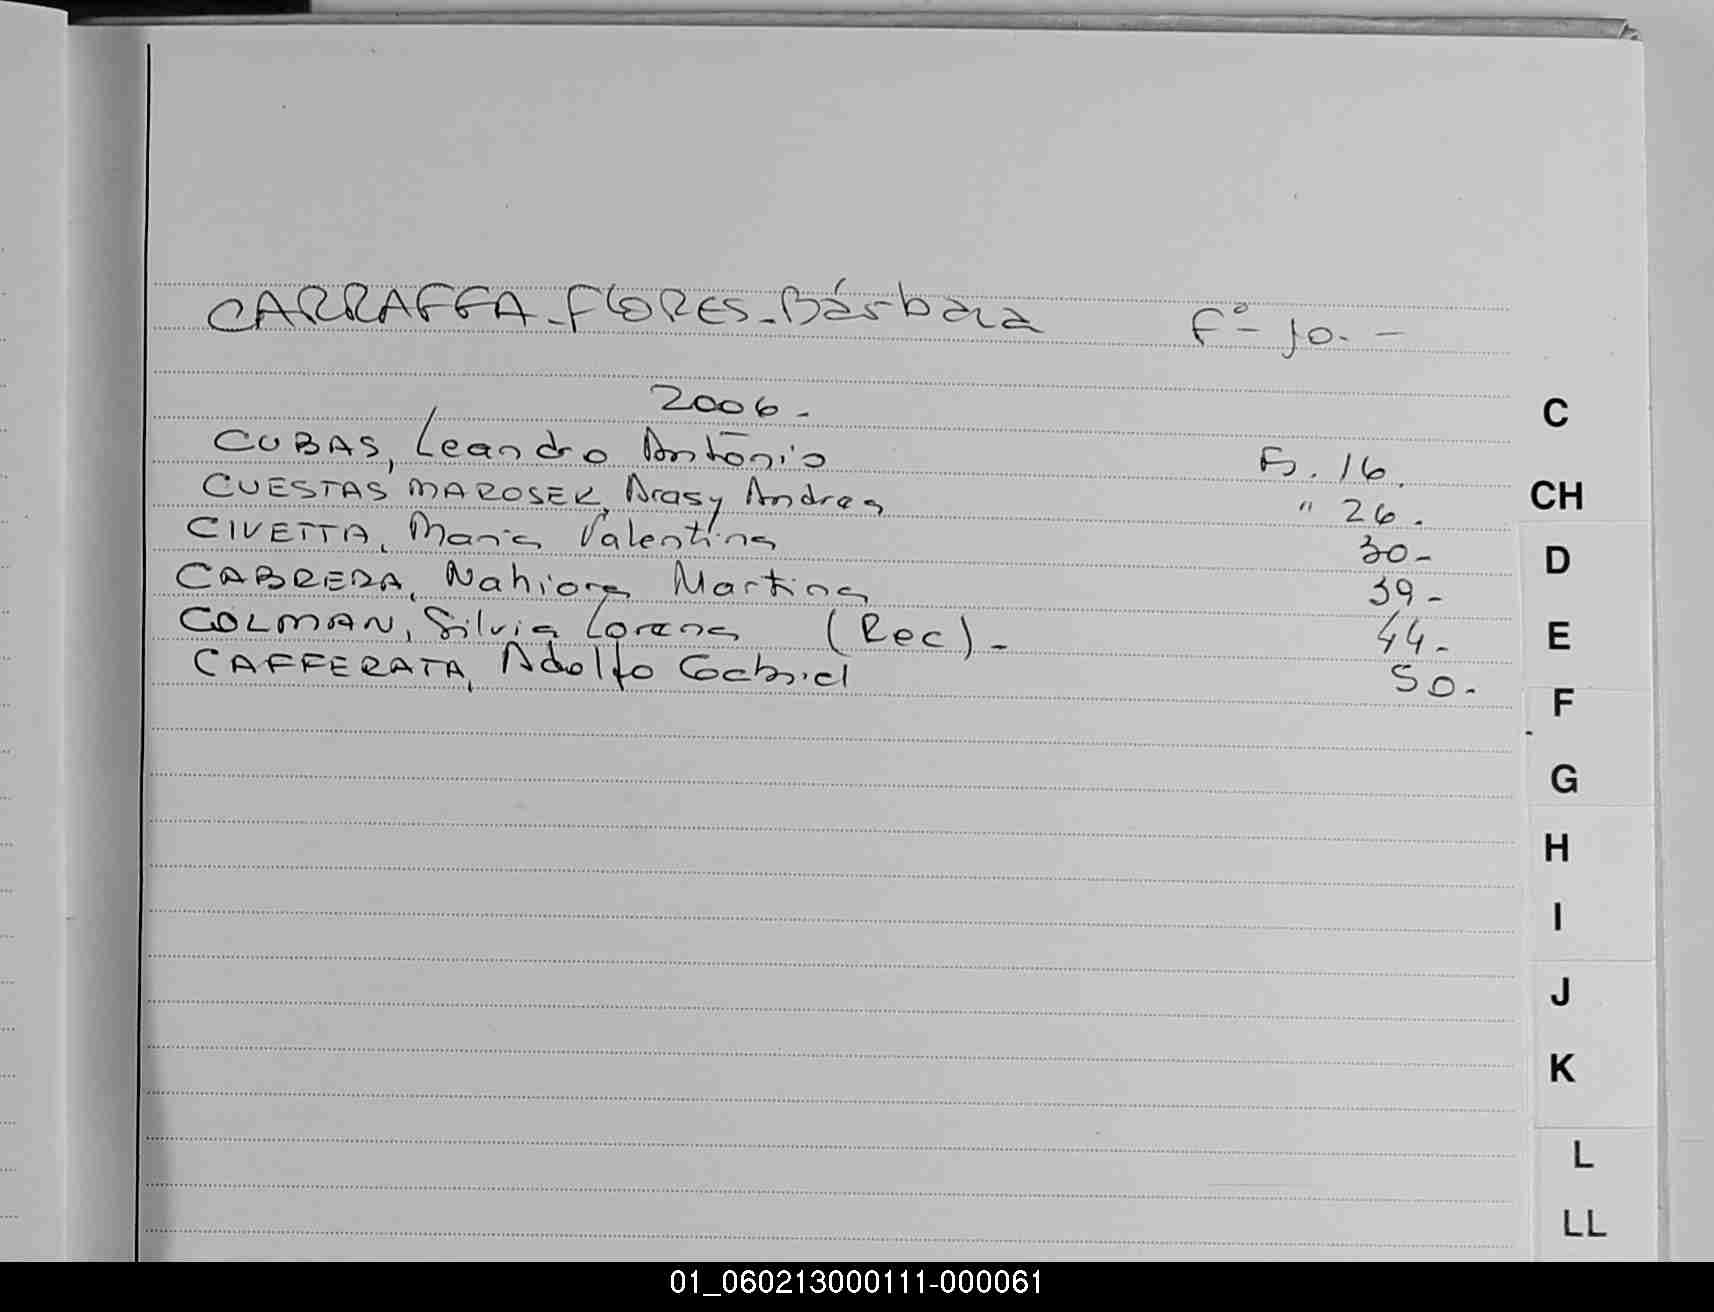 CARRAFFA - FLORES - Bárbara Fº- 10. -
2006 -
CUBAS, Leandro Antonio Fs. 16.
CUESTAS MAROSEK, Arasy Andrea " 26.
CIVETTA, Maria Valentina 30 -
CABRERA, Nahiara Martina 39 -
COLMAN, Silvia Lorena (Rec) - 44 -
CAFFERATA, Adolfo Gabriel 50 -
C
CH
D
E
F
G
H
I
J
K
L
LL
01_060213000111-000061